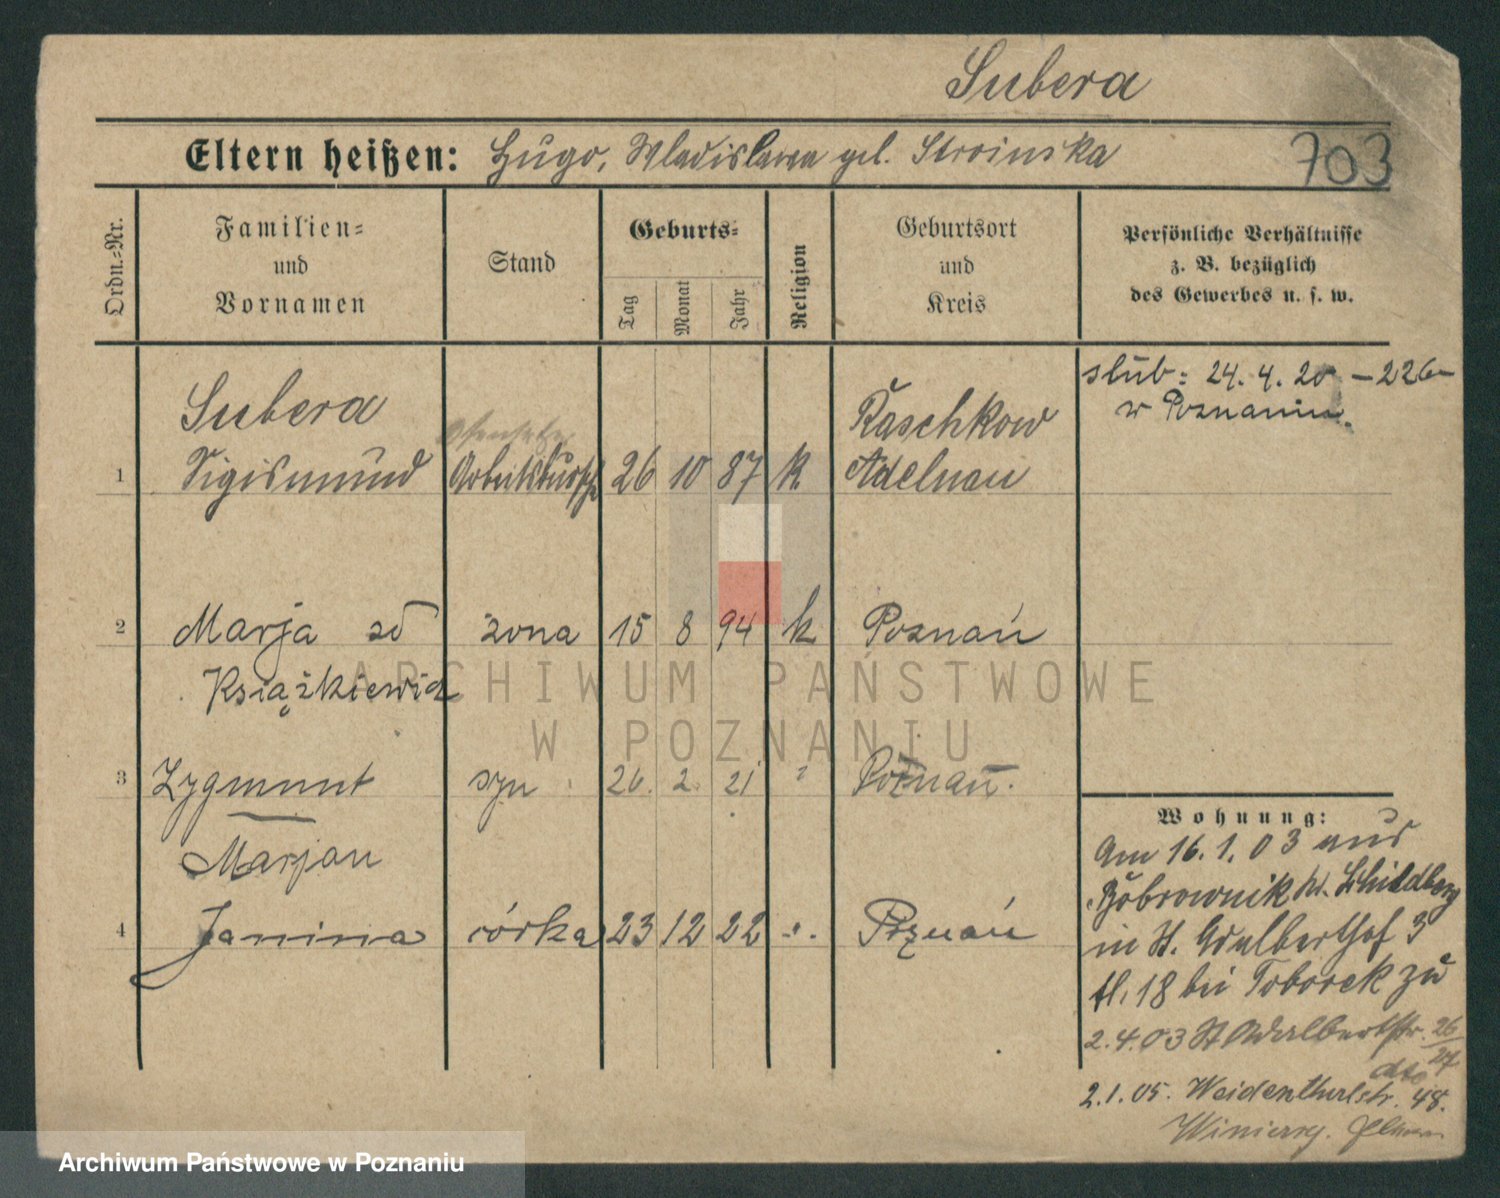 Subera
Eltern heißen: Hugo, Wladislawa geb. Stroinska
703
Ordn.-Nr.
Familien-
und
Vornamen
Stand
Geburts-
Tag
Monat
Jahr
Religion
Geburtsort
und
Kreis
Persönliche Verhältnisse
z. B. bezüglich
des Gewerbes u. s. w.
ślub: 24. 4. 20 – 226
w Poznaniu.
Subera Raschkow
1 Sigismund Arbeitsbursche 26 10 87 k. Adelnau
2 Marja zd żona 15 8 94 k Poznań
Książkiewicz
3 Zygmunt syn 26. 2. 21 " Poznań.
Marjan
4 Janina córka 23 12 22 -"- Poznań
Wohnung:
Am 16. 1. 03 aus
Bobrownik Kr. Schildberg
in St. Adalberthof 3
tl. 18 bei Toborek zu
2. 4. 03 St Adalbertstr. 26/27
dto
2. 1. 05. Weidenthalstr. 48.
ARCHIWUM PAŃSTWOWE
W POZNANIU
Archiwum Państwowe w Poznaniu